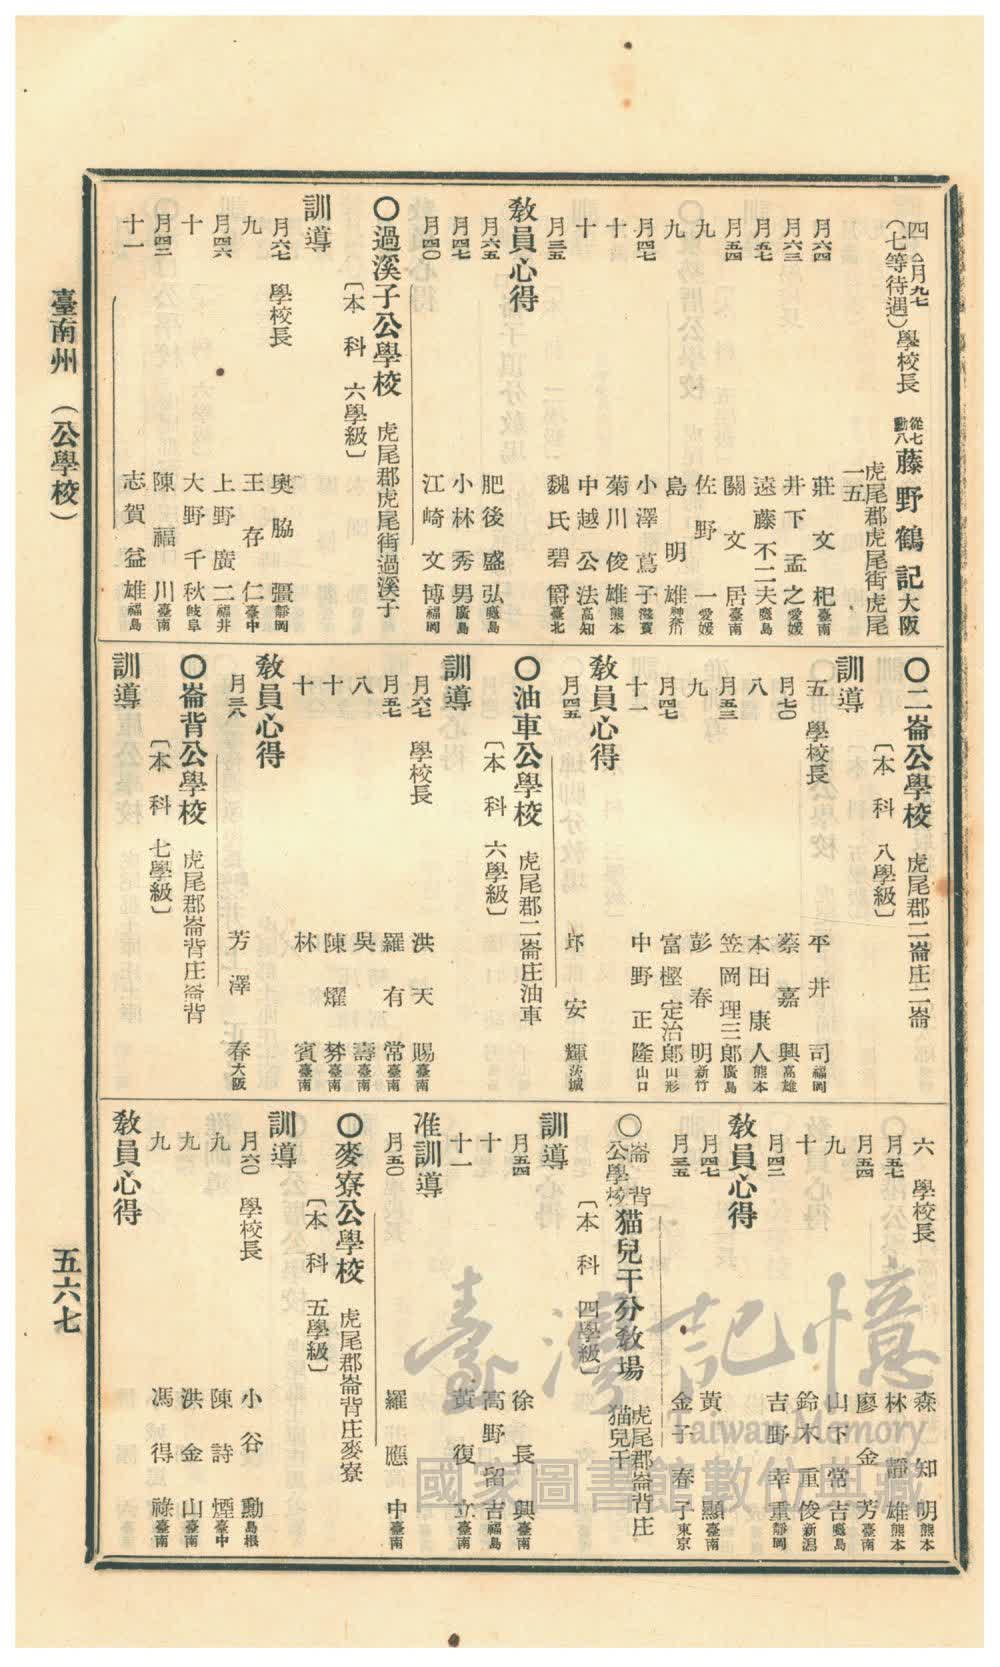 臺南州 (公學校)
五六七
四 月九七
(七等待遇) 學校長 從七勳八 藤野鶴記 大阪
虎尾郡虎尾街虎尾一五
月六四 莊文杞 臺南
月六三 井下孟之 愛媛
月五七 遠藤不二夫 鹿島
月五四 關文居 臺南
九 佐野一 愛媛
九 島明雄
月四七 小澤蔦子 滋賀
十 菊川俊雄 熊本
十 中越公法 高知
月三五 魏氏碧爵 臺北
教員心得
月六五 肥後盛弘 鹿島
月四七 小林秀男 廣島
月四〇 江崎文博 福岡
〇過溪子公學校 虎尾郡虎尾街過溪子
〔本科 六學級〕
訓導
月六七 學校長 奧脇彊 靜岡
九 王存仁 臺中
月四六 上野廣二 福井
十 大野千秋 岐阜
月四二 陳福川 臺南
十一 志賀益雄 福島
〇二崙公學校 虎尾郡二崙庄二崙
〔本科 八學級〕
訓導
五 學校長 平井司 福岡
月七〇 蔡嘉興 高雄
八 本田康人 熊本
月五三 笠岡理三郎 廣島
九 彭春明 新竹
月四七 富樫定治郎 山形
十一 中野正隆 山口
教員心得
月四五 安輝 茨城
〇油車公學校 虎尾郡二崙庄油車
〔本科 六學級〕
訓導
月六七 學校長 洪天賜 臺南
月五七 羅有常 臺南
八 吳壽 臺南
十 陳燿 臺南
十 林賓 臺南
教員心得
月三八 芳澤春 大阪
〇崙背公學校 虎尾郡崙背庄崙背
〔本科 七學級〕
訓導
六 學校長 森知明 熊本
月五七 林靜雄 熊本
月五四 廖金芳 臺南
九 山下常吉 鹿島
十 鈴木重俊 新潟
月四二 吉野幸重 靜岡
教員心得
月四七 黃顯 臺南
月三五 金子春子 東京
〇崙背公學校 猫兒干分教場 虎尾郡崙背庄猫兒干
〔本科 四學級〕
訓導
月五四 徐長興 臺南
十 高野留吉 福島
十一 黃復立 臺南
准訓導
月五〇 羅應中 臺南
〇麥寮公學校 虎尾郡崙背庄麥寮
〔本科 五學級〕
訓導
月六〇 學校長 小谷勳 島根
九 陳詩煙 臺中
九 洪金山 臺南
九 馮得祿 臺南
教員心得
臺灣記憶
Taiwan Memory
國家圖書館數位典藏